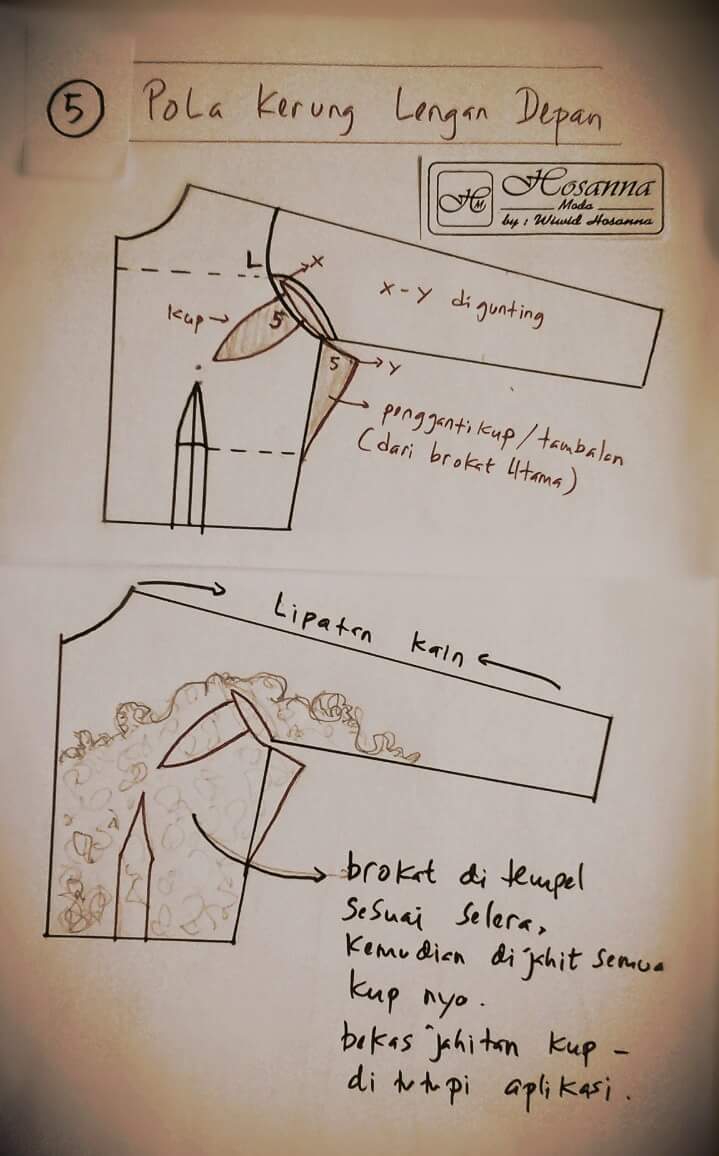 5 Pola Kerung Lengan Depan
Hosanna
HM
Moda
by : Wiwid Hosanna
L
X
X-Y digunting
kup
5
5
Y
pengganti kup/tambalan
(dari brokat Utama)
Lipatan kain
brokat di tempel
sesuai selera,
kemudian dijahit semua
kup nyo.
bekas jahitan kup -
di tutupi aplikasi.